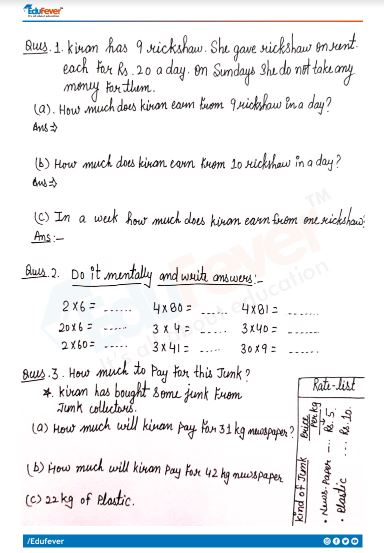 EduFever
It's all about education
Ques. 1. Kiran has 9 rickshaw. She gave rickshaw on rent
each for Rs. 20 a day. On Sundays She do not take any
money for them.
(a). How much does kiran earn from 9 rickshaw in a day?
Ans :⇒
(b) How much does kiran earn from 10 rickshaw in a day?
Ans :⇒
(C) In a week how much does kiran earn from one rickshaw?
Ans :-
Ques. 2. Do it mentally and write answers:-
2×6 = ...... 4×80 = ...... 4×81 = ......
20×6 = ...... 3×4 = ...... 3×40 = ......
2×60 = ...... 3×41 = ...... 30×9 = ......
Ques. 3. How much to Pay for this Junk?
* Kiran has bought some junk from
Junk collectors.
(a) How much will kiran pay for 31 kg newspaper?
(b) How much will kiran pay for 42 kg newspaper
(c) 22 kg of Plastic.
Rate-list
Kind of Junk Price Per kg
• News-Paper --- Rs. 5
• Plastic .... Rs. 10.
EduFever
We all about education
TM
/Edufever